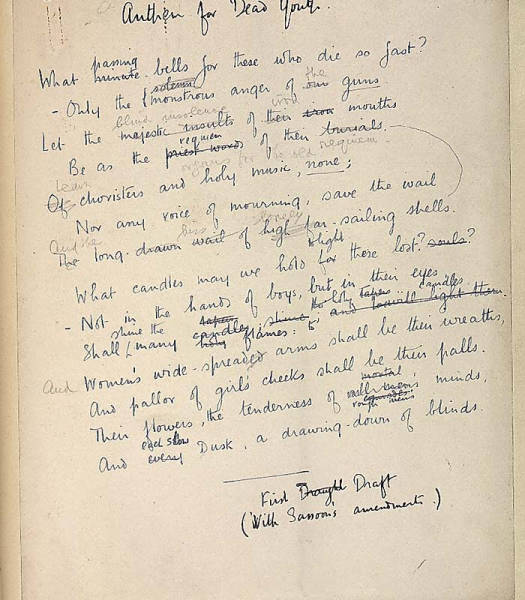 Anthem for Dead Youth.
passing
What minute bells for these who die so fast?
solemn the
- Only the monstrous anger of our guns.
blind insolence iron
Let the majestic insults of their iron mouths
requiem
Be as the priest words of their burials.
Of choristers and holy music, none;
Nor any voice of mourning, save the wail
And the hiss lonely
The long-drawn wail of high far-sailing shells.
light
What candles may we hold for these lost? souls?
- Not in the hands of boys, but in their eyes
shine the tapers candles
Shall many candles shine and will light them.
holy flames:
And Women's wide-spreaded arms shall be their wreaths,
And pallor of girls' cheeks shall be their palls.
mortal
Their flowers, the tenderness of minds,
rough men's
each slow
And every Dusk, a drawing-down of blinds.
First Draught Draft
(With Sassoon's amendments.)